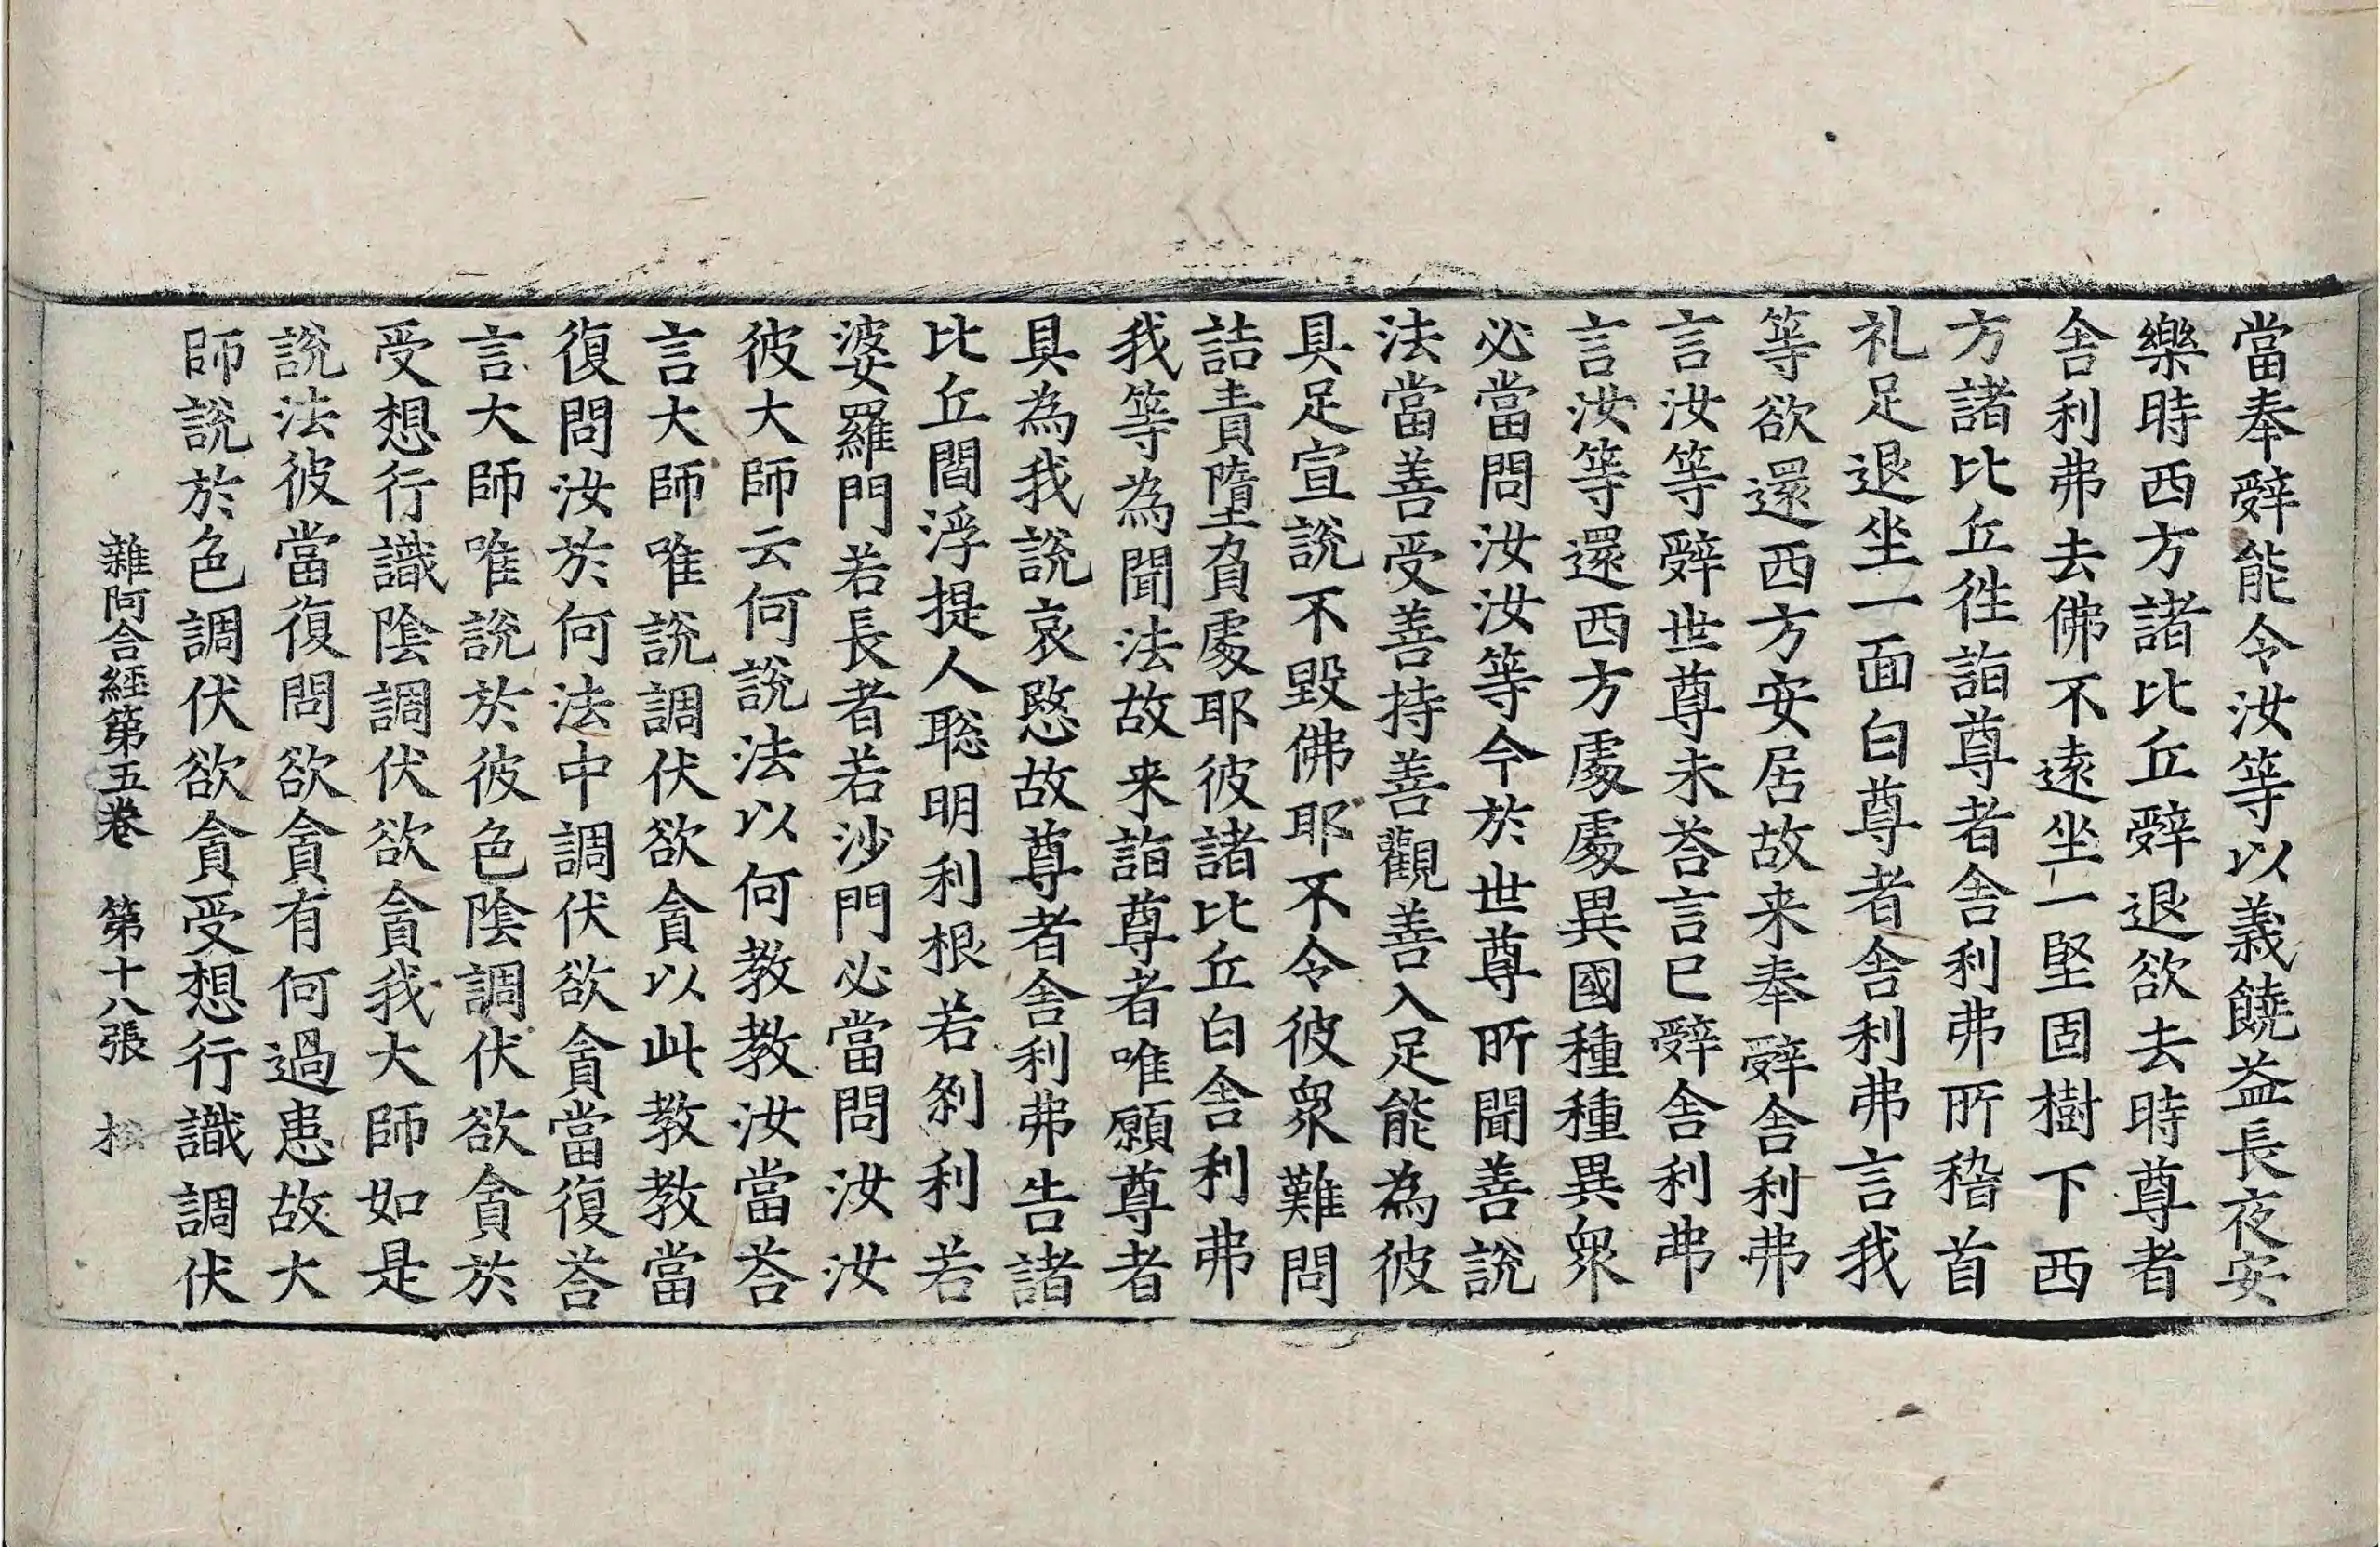 當奉辤能令汝等以義饒益長夜安
樂時西方諸比丘辤退欲去時尊者
舎利弗去佛不遠坐一堅固樹下西
方諸比丘徃詣尊者舎利弗所稽首
礼足退坐一面白尊者舎利弗言我
等欲還西方安居故来奉辤舎利弗
言汝等辤世尊未荅言已辤舎利弗
言汝等還西方處處異國種種異衆
必當問汝汝等今於世尊所聞善說
法當善受善持善觀善入足能為彼
具足宣說不毀佛耶不令彼衆難問
詰責墮負處耶彼諸比丘白舎利弗
我等為聞法故来詣尊者唯願尊者
具為我說哀愍故尊者舎利弗告諸
比丘閻浮提人聡明利根若剎利若
婆羅門若長者若沙門必當問汝汝
彼大師云何說法以何教教汝當荅
言大師唯說調伏欲貪以此教教當
復問汝於何法中調伏欲貪當復荅
言大師唯說於彼色陰調伏欲貪於
受想行識陰調伏欲貪我大師如是
說法彼當復問欲貪有何過患故大
師說於色調伏欲貪受想行識調伏
雜阿含經第五卷　第十八張　松